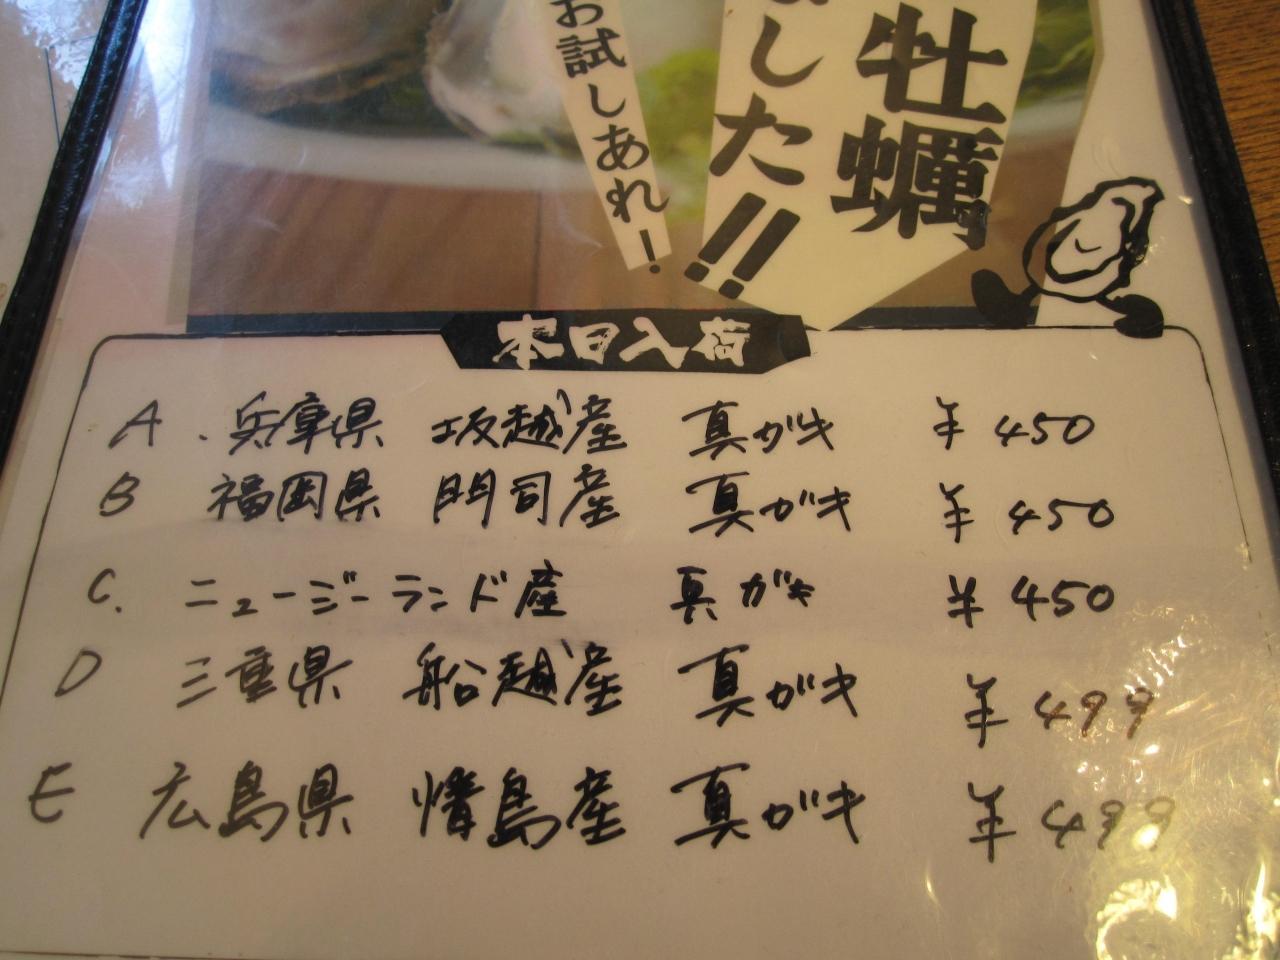 牡蠣
した!!
お試しあれ!
本日入荷
A. 兵庫県 坂越産 真がキ ¥450
B 福岡県 門司産 真がキ ¥450
C. ニュージーランド産 真がキ ¥450
D 三重県 船越産 真がキ ¥499
E 広島県 情島産 真がキ ¥499